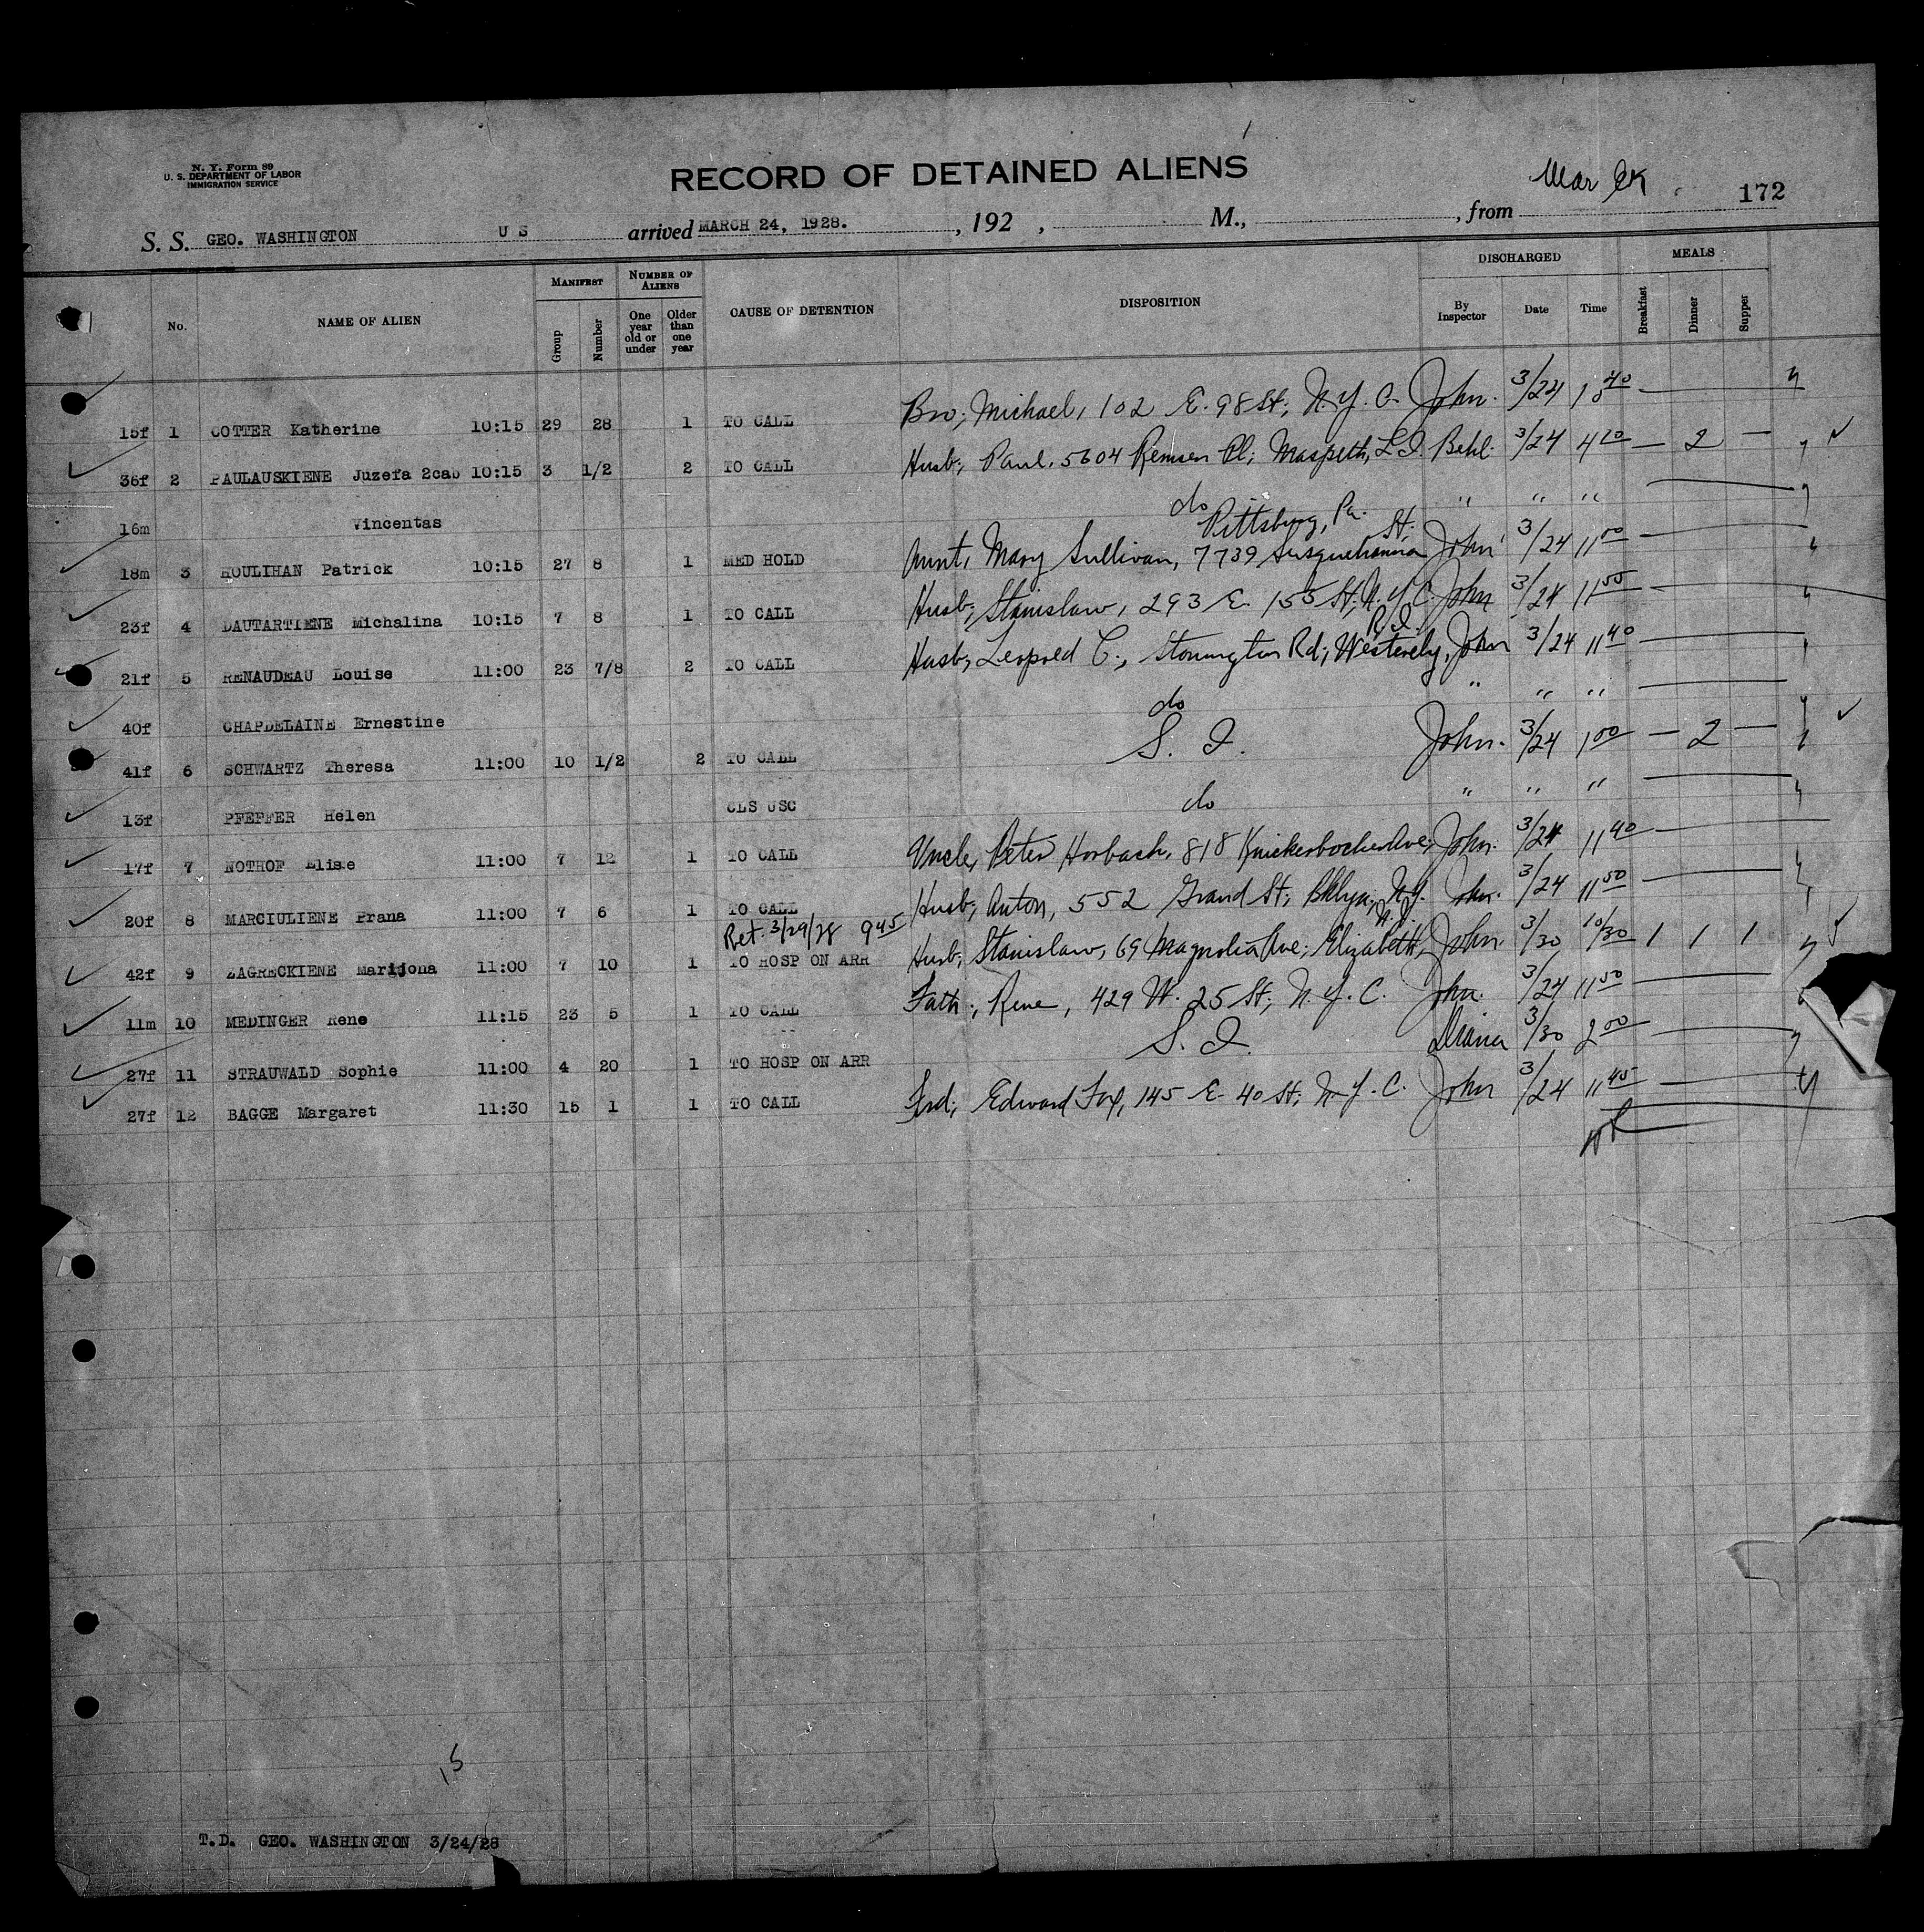 N. Y. Form 89
U. S. DEPARTMENT OF LABOR
IMMIGRATION SERVICE
RECORD OF DETAINED ALIENS
172
S. S. GEO. WASHINGTON U S arrived MARCH 24, 1928. , 192 , M., , from
No. NAME OF ALIEN MANIFEST Group Number NUMBER OF ALIENS One year old or under Older than one year CAUSE OF DETENTION DISPOSITION DISCHARGED By Inspector Date Time MEALS Breakfast Dinner Supper
15f 1 COTTER Katherine 10:15 29 28 1 TO CALL Bro; Michael, 102 E. 98 St; N.Y.C. John. 3/24 1 40
36f 2 PAULAUSKIENE Juzefa 2cab 10:15 3 1/2 2 TO CALL Husb; Paul, 5604 Remsen Pl; Maspeth, L.I. Behl. 3/24 4 20 — 2 —
16m Vincentas do " " "
18m 3 HOULIHAN Patrick 10:15 27 8 1 MED HOLD Aunt, Mary Sullivan, 7739 Susquehanna St. Pittsburg, Pa. John 3/24 11 00
23f 4 DAUTARTIENE Michalina 10:15 7 8 1 TO CALL Husb; Stanislaw, 293 E. 155 St; N.Y.C. John 3/24 11 55
21f 5 RENAUDEAU Louise 11:00 23 7/8 2 TO CALL Husb; Leopold C., Stonington Rd; Westerely, R.I. John 3/24 11 40
40f CHAPDELAINE Ernestine do " " "
41f 6 SCHWARTZ Theresa 11:00 10 1/2 2 TO CALL S. I. John. 3/24 1 00 — 2 —
13f PFEFFER Helen CLS USC do " " "
17f 7 NOTHOF Elise 11:00 7 12 1 TO CALL Uncle, Peter Horbach, 818 Knickerbocker Ave; John. 3/24 11 40
20f 8 MARCIULIENE Prana 11:00 7 6 1 TO CALL Husb; Anton, 552 Grand St; Bklyn; N.Y. John. 3/24 11 50
Ret. 3/29/28 9 45
42f 9 ZAGRECKIENE Marijona 11:00 7 10 1 TO HOSP ON ARR Husb; Stanislaw, 69 Magnolia Ave; Elizabeth, N.J. John. 3/30 10/30 1 1 1
11m 10 MEDINGER Rene 11:15 23 5 1 TO CALL Fath; Rene, 429 W. 25 St; N.Y.C. John. 3/24 11 50
27f 11 STRAUWALD Sophie 11:00 4 20 1 TO HOSP ON ARR S. I. 3/30 2 00
27f 12 BAGGE Margaret 11:30 15 1 1 TO CALL Frd; Edward Fox, 145 E. 40 St; N.Y.C. John 3/24 11 45
15
T.D. GEO. WASHINGTON 3/24/28